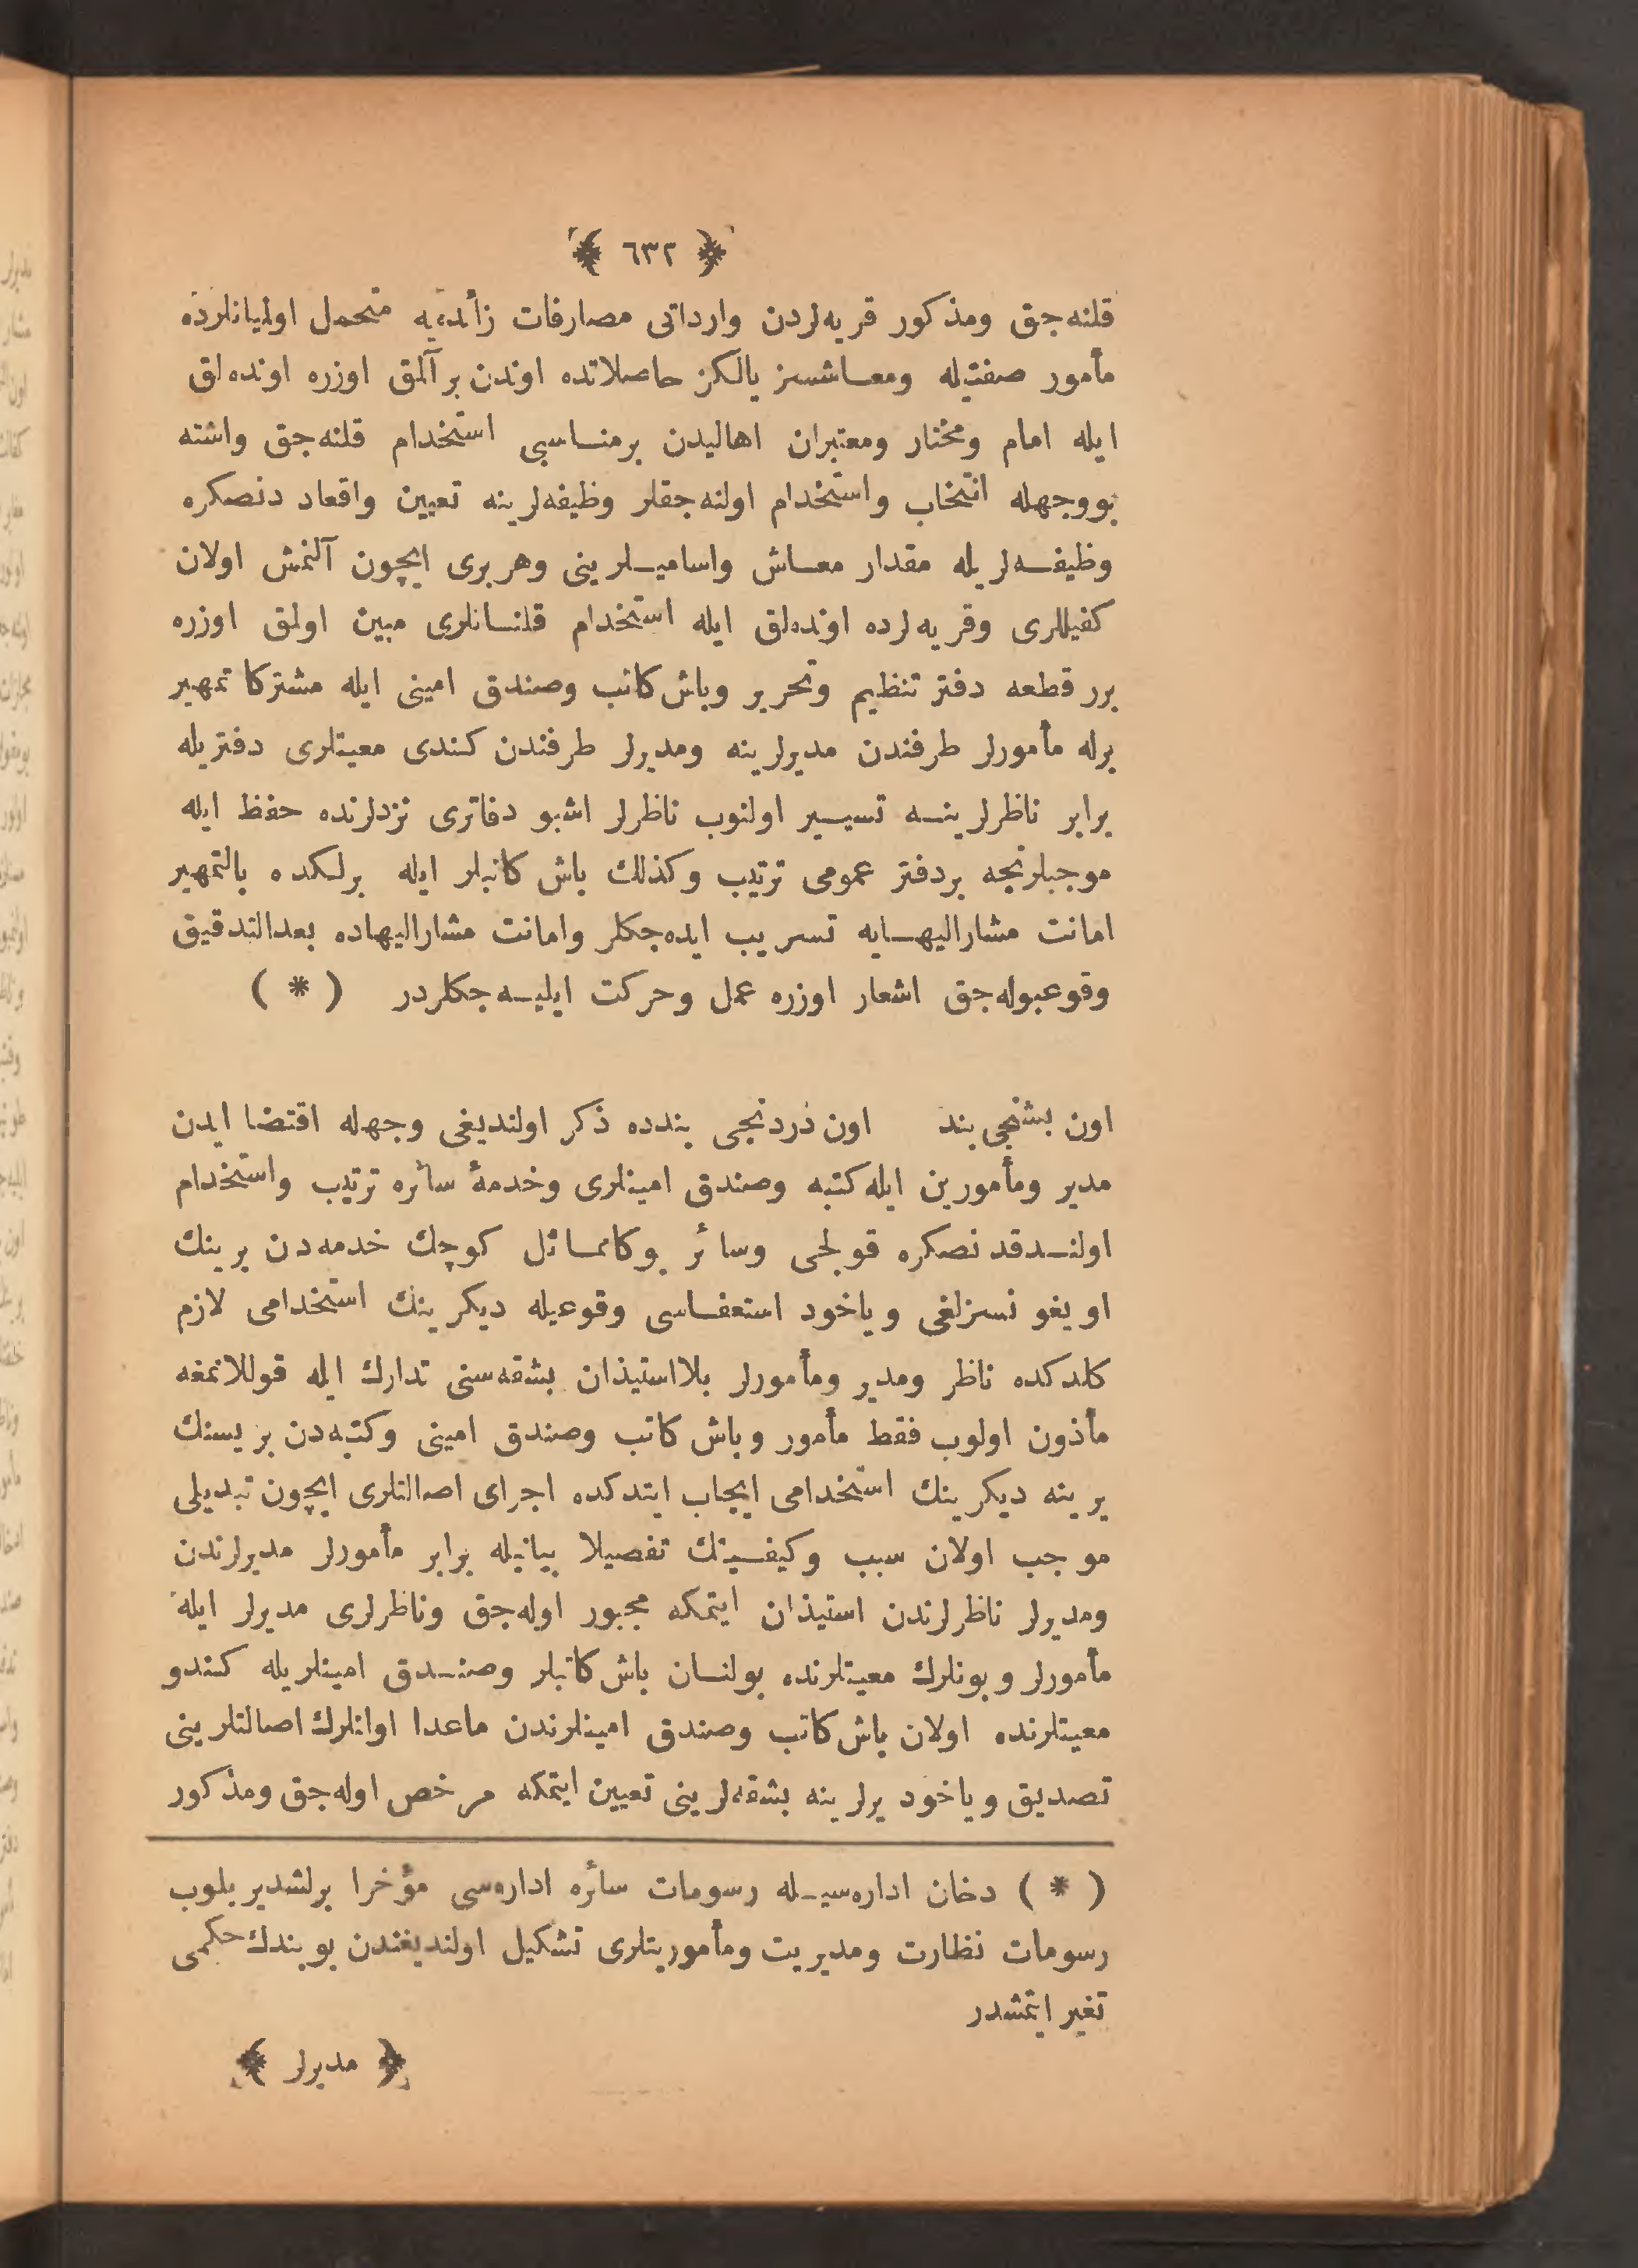 ﴿ ٦٣٢ ﴾
قلنه‌جق ومذكور قريه‌لردن وارداتى مصارفات زأئده‌يه متحمل اولميانلرده
مأمور صفتيله ومعاشسز يالكز حاصلاتده اوندن برآلمق اوزره اونده‌لق
ايله امام ومختار ومعتبران اهاليدن برمناسبى استخدام قلنه‌جق واشته
بووجهله انتخاب واستخدام اولنه‌جقلر وظيفه‌لرينه تعيين واقعاد دنصكره
وظيفه‌لريله مقدار معاش واساميلرينى وهربرى ايچون آلنمش اولان
كفيللرى وقريه‌لرده اونده‌لق ايله استخدام قلنانلرى مبين اولمق اوزره
برر قطعه دفتر تنظيم وتحرير وباش كاتب وصندق امينى ايله مشتركا تمهير
برله مأمورلر طرفندن مديرلرينه ومديرلر طرفندن كندى معيتلرى دفتريله
برابر ناظرلرينه تسيير اولنوب ناظرلر اشبو دفاترى نزدلرنده حفظ ايله
موجبلرنجه بردفتر عمومى ترتيب وكذلك باش كاتبلر ايله برلكده بالتمهير
امانت مشاراليهايه تسريب ايده‌جكلر وامانت مشاراليهاده بعدالتدقيق
وقوعبوله‌جق اشعار اوزره عمل وحركت ايليه‌جكلردر ( * )
اون بشنجى بند اون دردنجى بندده ذكر اولنديغى وجهله اقتضا ايدن
مدير ومأمورين ايله كتبه وصندق امينلرى وخدمهٔ سائره ترتيب واستخدام
اولندقدنصكره قولجى وسائر بوكامماثل كوچك خدمه‌دن برينك
اويغونسزلغى وياخود استعفاسى وقوعيله ديكرينك استخدامى لازم
كلدكده ناظر ومدير ومأمورلر بلااستيذان بشقه‌سنى تدارك ايله قوللانمغه
مأذون اولوب فقط مأمور وباش كاتب وصندق امينى وكتبه‌دن بريسنك
يرينه ديكرينك استخدامى ايجاب ايتدكده اجراى اصالتلرى ايچون تبديلى
موجب اولان سبب وكيفيتك تفصيلا بيانيله برابر مأمورلر مديرلرندن
ومديرلر ناظرلرندن استيذان ايتمكه مجبور اوله‌جق وناظرلرى مديرلر ايله
مأمورلر وبونلرك معيتلرنده بولنان باش كاتبلر وصندق امينلريله كندو
معيتلرنده اولان باش كاتب وصندق امينلرندن ماعدا اولانلرك اصالتلرينى
تصديق وياخود يرلرينه بشقه‌لرينى تعيين ايتمكه مرخص اوله‌جق ومذكور
( * ) دخان اداره‌سيله رسومات سأئره اداره‌سى مؤخرا برلشديريلوب
رسومات نظارت ومديريت ومأموريتلرى تشكيل اولنديغندن بوبندك حكمى
تغير ايتمشدر
﴿ مديرلر ﴾